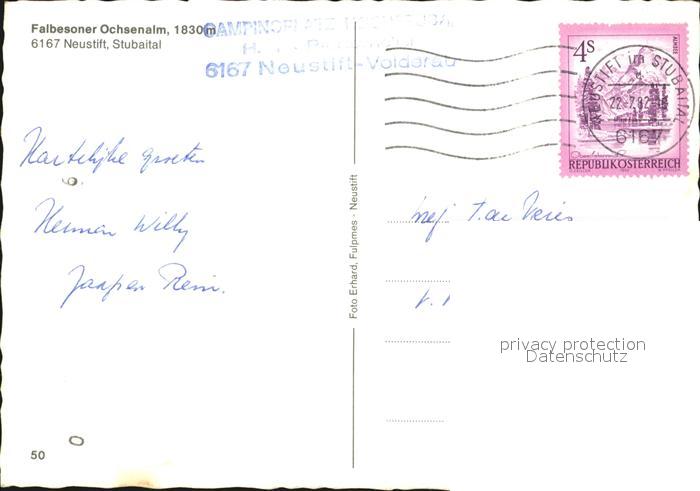 Falbesoner Ochsenalm, 1830 m
6167 Neustift, Stubaital
CAMPINGPLATZ
6167 Neustift-Volderau
Hartelijke groeten
Herman Willy
Jaap en Rein.
50
Foto Erhard, Fulpmes - Neustift
4S
ALMSEE
REPUBLIK ÖSTERREICH
NEUSTIFT im STUBAITAL
22.7.82
6167
Mej T. de Vries
privacy protection
Datenschutz